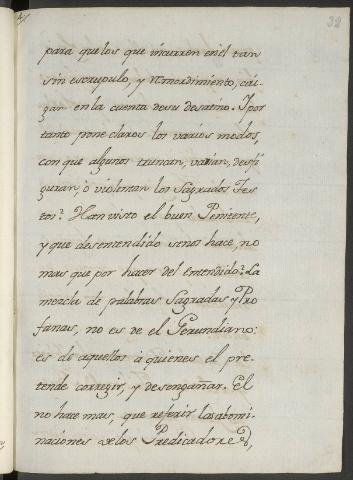 32
para que los que incurren en el tan
sin escrupulo, y remordimiento, cai-
gan en la cuenta de su desatino. I por
tanto pone claros los varios modos,
con que algunos truncan, varian, desfi
guran, ò violentan los Sagrados Tes
tos? Han visto el buen Peniente,
y que desentendido senos hace, no
mas que por hacer del entendido? La
mezcla de palabras Sagradas y Pro
fanas, no es de el Gerundiano:
es de aquellos à quienes el pre-
tende corregir, y desengañar. El
no hace mas, que referir las abomi-
naciones de los Predicadores,